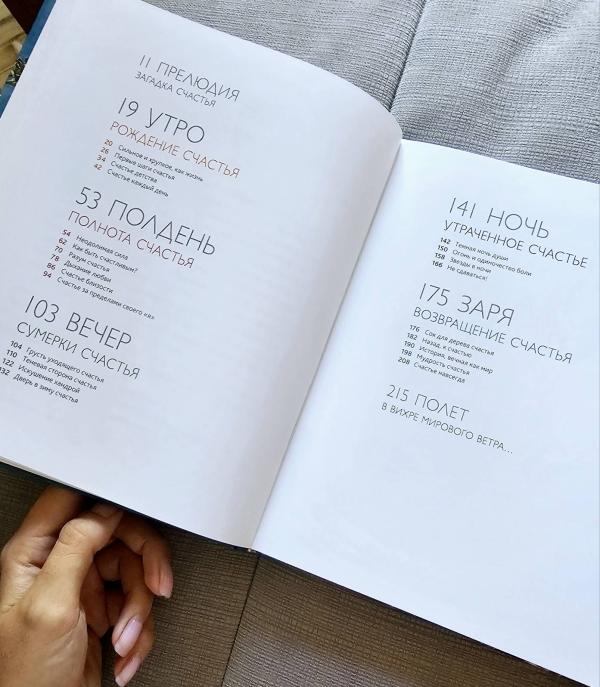 11 ПРЕЛЮДИЯ
ЗАГАДКА СЧАСТЬЯ
19 УТРО
РОЖДЕНИЕ СЧАСТЬЯ
20 Сильное и хрупкое, как жизнь
26 Первые шаги счастья
34 Счастье детства
42 Счастье каждый день
53 ПОЛДЕНЬ
ПОЛНОТА СЧАСТЬЯ
54 Неодолимая сила
62 Как быть счастливым?
70 Разум счастья
78 Дыхание любви
86 Счастье близости
94 Счастье за пределами своего «я»
103 ВЕЧЕР
СУМЕРКИ СЧАСТЬЯ
104 Грусть уходящего счастья
110 Теневая сторона счастья
122 Искушение хандрой
132 Дверь в зиму счастья
141 НОЧЬ
УТРАЧЕННОЕ СЧАСТЬЕ
142 Темная ночь души
150 Огонь и одиночество боли
158 Звезды в ночи
166 Не сдаваться!
175 ЗАРЯ
ВОЗВРАЩЕНИЕ СЧАСТЬЯ
176 Сок для дерева счастья
182 Назад, к счастью
190 История, вечная как мир
198 Мудрость счастья
208 Счастье навсегда
215 ПОЛЕТ
В ВИХРЕ МИРОВОГО ВЕТРА...